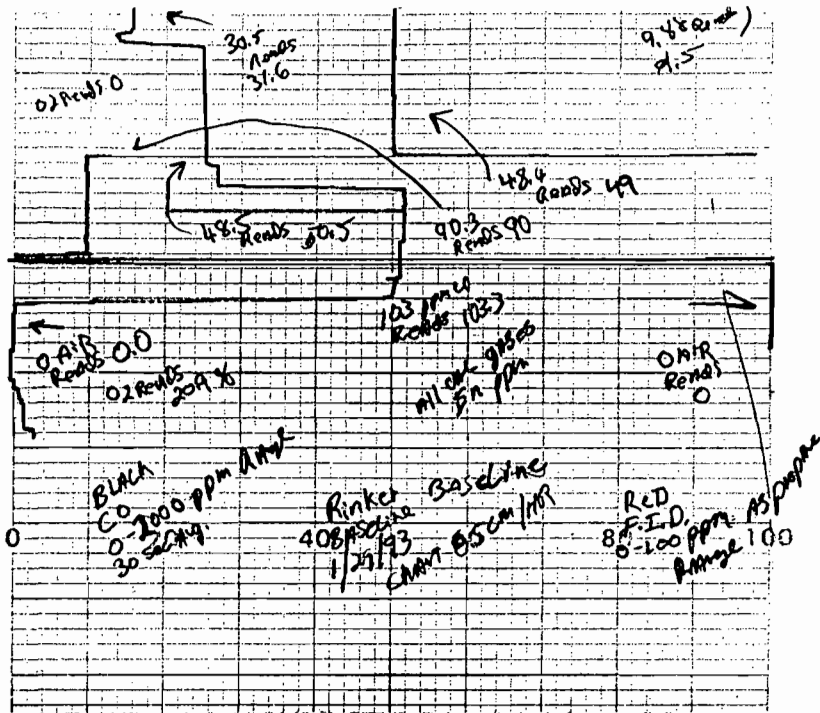 30.5
Reads
31.6
9.88
9.5
O2 Reads 0
48.4
Reads 49
48.5
Reads 50.5
90.3
Reads 90
103 ppm
Reads 103.3
0 AIR
Reads 0.0
O2 Reads
20.9 %
All cal gases
in ppm
0 AIR
Reads
0
BLACK
CO
0-2000 ppm Range
30 sec Avg.
Rinker Baseline
BASeline
1/29/93
CHART 0.5 cm/HOR
ReD
F.I.D.
0-100 ppm AS propane
RAnge
0
40
80
100